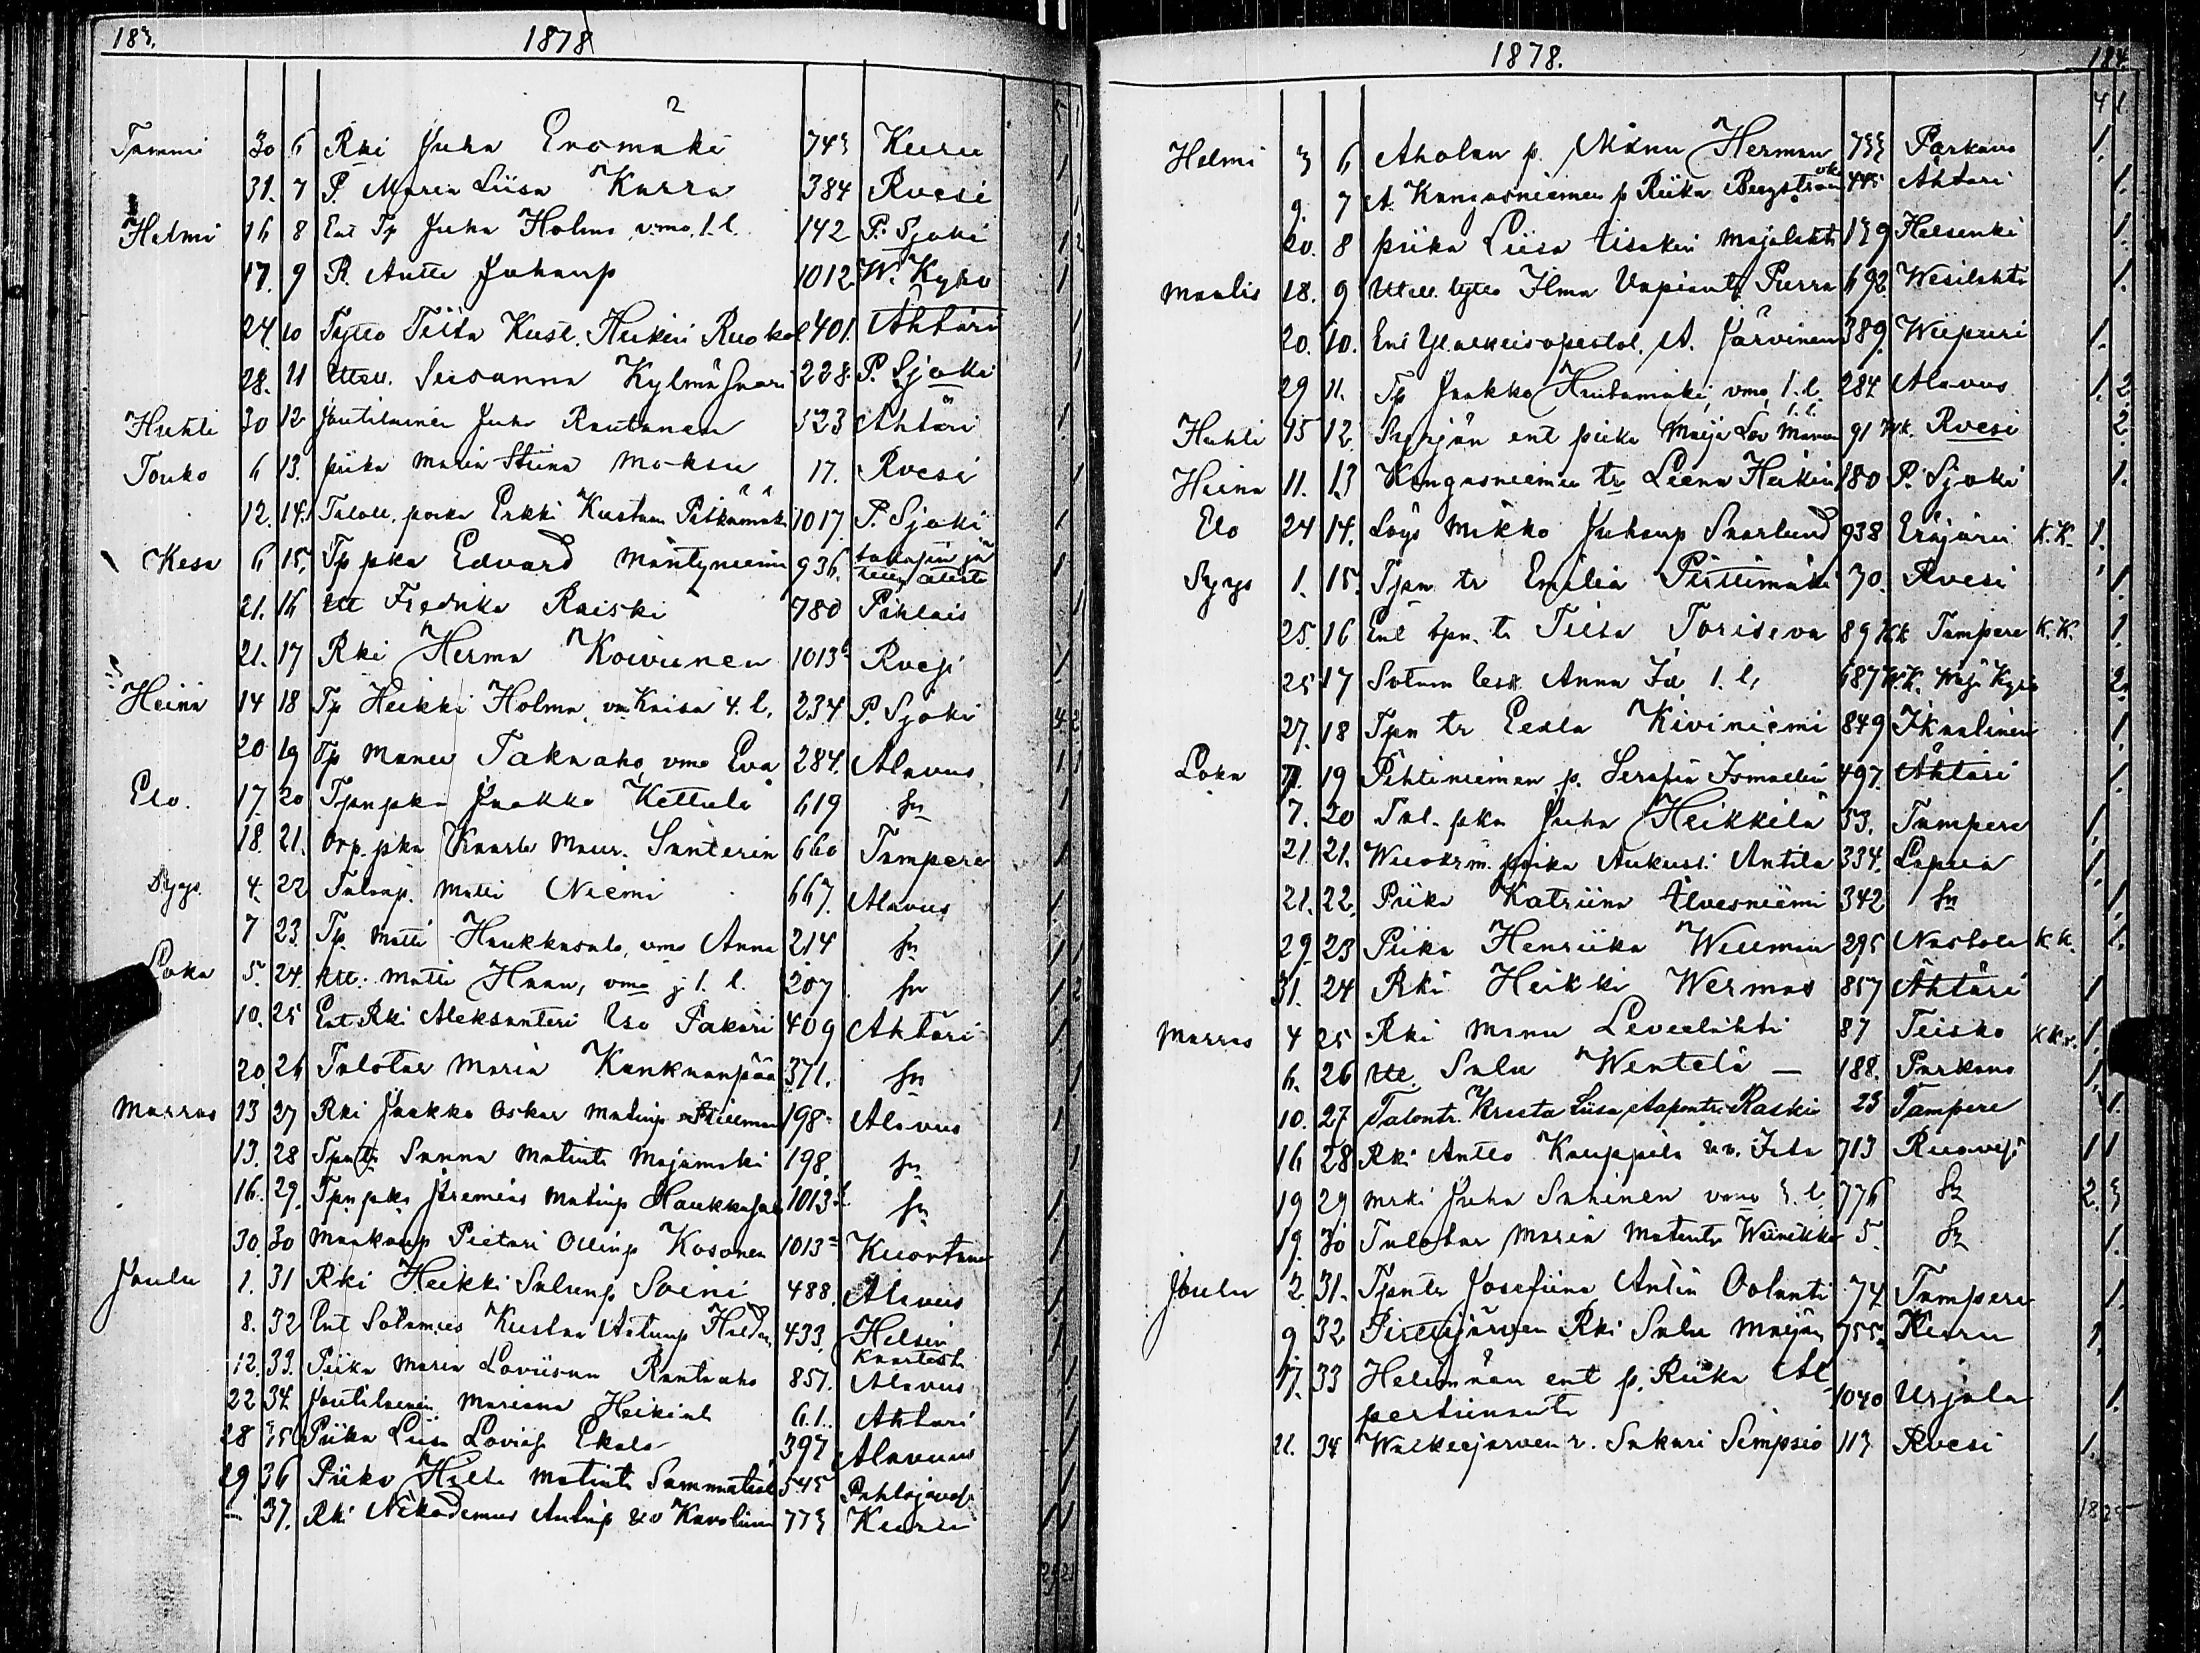 183. 1878
5 1
Tammi 30 6 Rki Juha Eromäki 743 Kuru 1
31. 7 P. Maria Liisa Karra 384 Rvesi 1
Helmi 16 8 Ent Tp Juha Holma, vmo, 1. l. 142 P. Sjoki 1 2
17. 9 R. Antti Juhanp 1012. W. Kyrö 1
24. 10 Tyttö Tilta Kust. Heikin Ruoko 401. Ähtäri 1
28. 11 Itsell. Susanna Kylmäsaari 228. P. Sjoki 1
Huhti 30 12 Juutilainen Juho Rautanen 523 Ähtäri 1.
Touko 6 13. piika Maria Stiina Moksu 17. Rvesi 1
12. 14. Taloll. poika Erkki Kustaa Pitkämäki 1017. P. Sjoki 1
Kesa 6 15. Tp pka Edvard Mäntyniemi 936. 1
21. 16 Itt Fredrika Raiski 780 Pihlais 1
21. 17 Rki Herma Koivunen 1013 Rvesi 1.
Heinä 14 18 Tp Heikki Holma, vm Kaisa 4. l. 234 P. Sjoki 4. 2
20 19 Tp Manu Takaaho, vmo Eva 284. Alavus 1 1
Elo. 17. 20 Tpnpka Jaakko Kettula 619 sn 1
18. 21. Orp. pka Kaarle Maur. Santerin 660 Tampere 1
Syys. 4. 22 Talonp. Matti Niemi 667. Alavus 1.
7 23. Tp. Matti Haukkasalo, vmo Anna 214 sn 1 1
Loka 5. 24. Itt. Matti Haan, vmo j 1. l. 207 sn 1. 2
10. 25 Ent Rki Aleksanteri Iso Pakari 409 Ähtäri 1.
20. 26 Talotar Maria Kankaanpää 371. sn 1.
Marras 13 27 Rki Jaakko Oskar Matinp Stillman 198 Alavus 1
13. 28 Tpntr Sanna Matintr Majamäki 198. sn 1
16. 29. Tpn pka Jeremias Matinp Haukkasal 1013 sn 1.
30. 30 Maakaup Pietari Ollinp Kosonen 1013 Kuortane 1
Joulu 1. 31 Rki Heikki Salunp Soini 488. Alavus 1.
8. 32 Ent Solamies Kustaa Antunp 433. Helsin kaartist. 1
12. 33. Piika Maria Loviisan Rantaaho 851. Alavus 1
22 34. Juutilainen Mariana Heikint 61. Ähtäri 1
28 35 Piika Liisa Loviisa Ekola 397 Alavuus 1
29 36 Piika Hilta Matintr 545 Pihlajaves 1
" 37. Rki Nikodemus Antinp &v Karoliina 773 Kuru 1 1
25 21
1878. 184.
4 1.
Helmi 3 6 Aholan p. Manu Herman 733 Parkano 1.
9. 7 A. Kangasniemen p Riika Bergström 445 Ähtäri 1.
20. 8 piika Liisa Iisakin Majalahti 139 Helsinki 1.
Maalis 18. 9 Itsell. tyttö Ilma Vapiantr Purra 692. Wesilahti 1.
20. 10. Ent Ylhäisopettol. A. Järvinen 389. Wiipuri 1.
29 11. Tp Jaakko Hautamäki, vmo 1. l. 284 Alavus 1. 2.
Huhti 15 12. Syrjän ent piika Maija Lov Manun 1. l. 91 kk. Rvesi 2.
Heina 11. 13 Kangasniemen tr Leena Heikin 180 P. Sjoki 1.
Elo 24 14. Löys Mikko Juhanp Saarlund 938 Eräjärvi K. K. 1.
Syys 1. 15. Tpn tr Emilia Pirttimäki 30. Rvesi 1.
25. 16 Ent tpn. tr Tilta Toriseva 89 kk Tampere K. K. 1.
25 17 Sotam lesk. Anna Ida 1. l, 687 K.K. Kyrö 2.
27. 18 Tpn tr Eeala Kiviniemi 849 Ikaalinen 1.
Loka 7. 19 Pihtiniemen p. Serafia Ismaelin 497. Ähtäri 1.
7. 20 Tal. pka Juha Heikkilä 33. Tampere 1.
21. 21. Wuokr.m. poika Aukusti Antila 334. Lapua 1.
21. 22. Piika Katriina Ilvesniemi 342 sn 1.
29. 23 Piika Henriika Willman 295 Nastola K. K. 1.
31. 24 Rki Heikki Wermas 857 Ähtäri 1
Marras 4 25 Rki Manu Leveelahti 87 Teisko K K. 1.
6. 26 Itt. Salu Wentelä — 188. Parkano 1.
10. 27 Talontr. Krista Liisa Aapontr. Raski 23 Tampere 1.
16 28 Rki Antto Kauppila &v. Ida 713 Ruovesi 1 1
19 29 Mrki Juha Sahinen vmo 3. l. 776 Sn 2. 3.
19. 30 Talotar Maria Matintr Wainikka 5. Sn 1.
Joulu 2. 31. Tpntr Josefiina Antin Oolanti 74 Tampere 1.
9 32 Pirttijärven Rki Salu Maijan 755. Kuru 1.
17. 33 Helinnän ent p. Riika Al pertinantr 1040 Urjala 1.
21. 34 Walkeejärven r. Sakari Simpsiö 113 Rvesi 1.
18 25